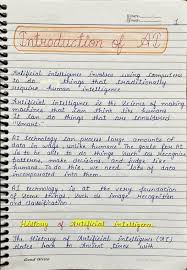 1
Introduction of AI
Artificial intelligence involves using computers
to do things that traditionally
require human intelligence
Artificial intelligence is the science of making
machines that can think like humans
It can do things that are considered
"smart"
AI technology can process large amounts of
data in ways, unlike humans. The goal for AI
is to be able to do things such as recognize
patterns, make decisions and judge like
humans. To do this, we need lots of data
incorporated into them.
AI technology is at the very foundation
of such things such as image recognition
and classification
History of Artificial intelligence
The History of Artificial intelligence (AI)
dates back to Ancient times with